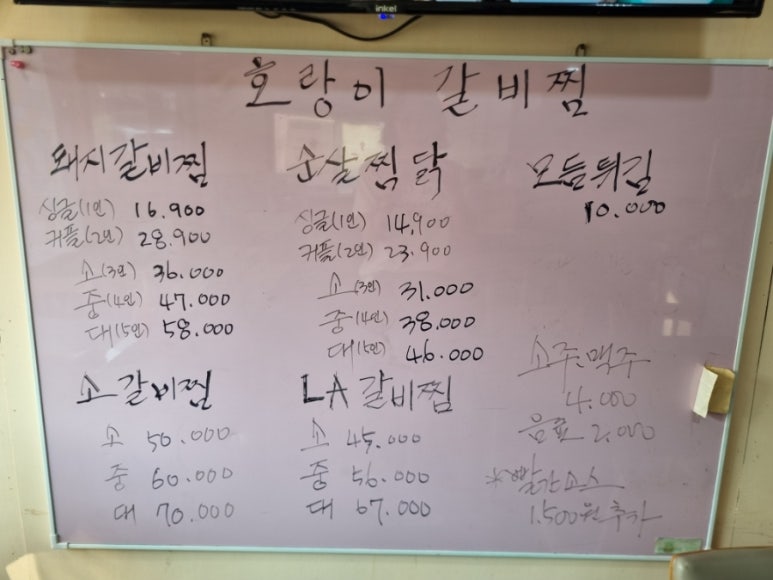 inkel
호랑이 갈비찜
돼지갈비찜
싱글(1인) 16.900
커플(2인) 28.900
소(3인) 36.000
중(4인) 47.000
대(5인) 58.000
순살찜닭
싱글(1인) 14,900
커플(2인) 23.900
소(3인) 31.000
중(4인) 38.000
대(5인) 46.000
모듬튀김
10.000
소갈비찜
소 50.000
중 60.000
대 70.000
LA갈비찜
소 45.000
중 56.000
대 67.000
소주.맥주
4.000
음료 2.000
*빨간소스
1.500원 추가